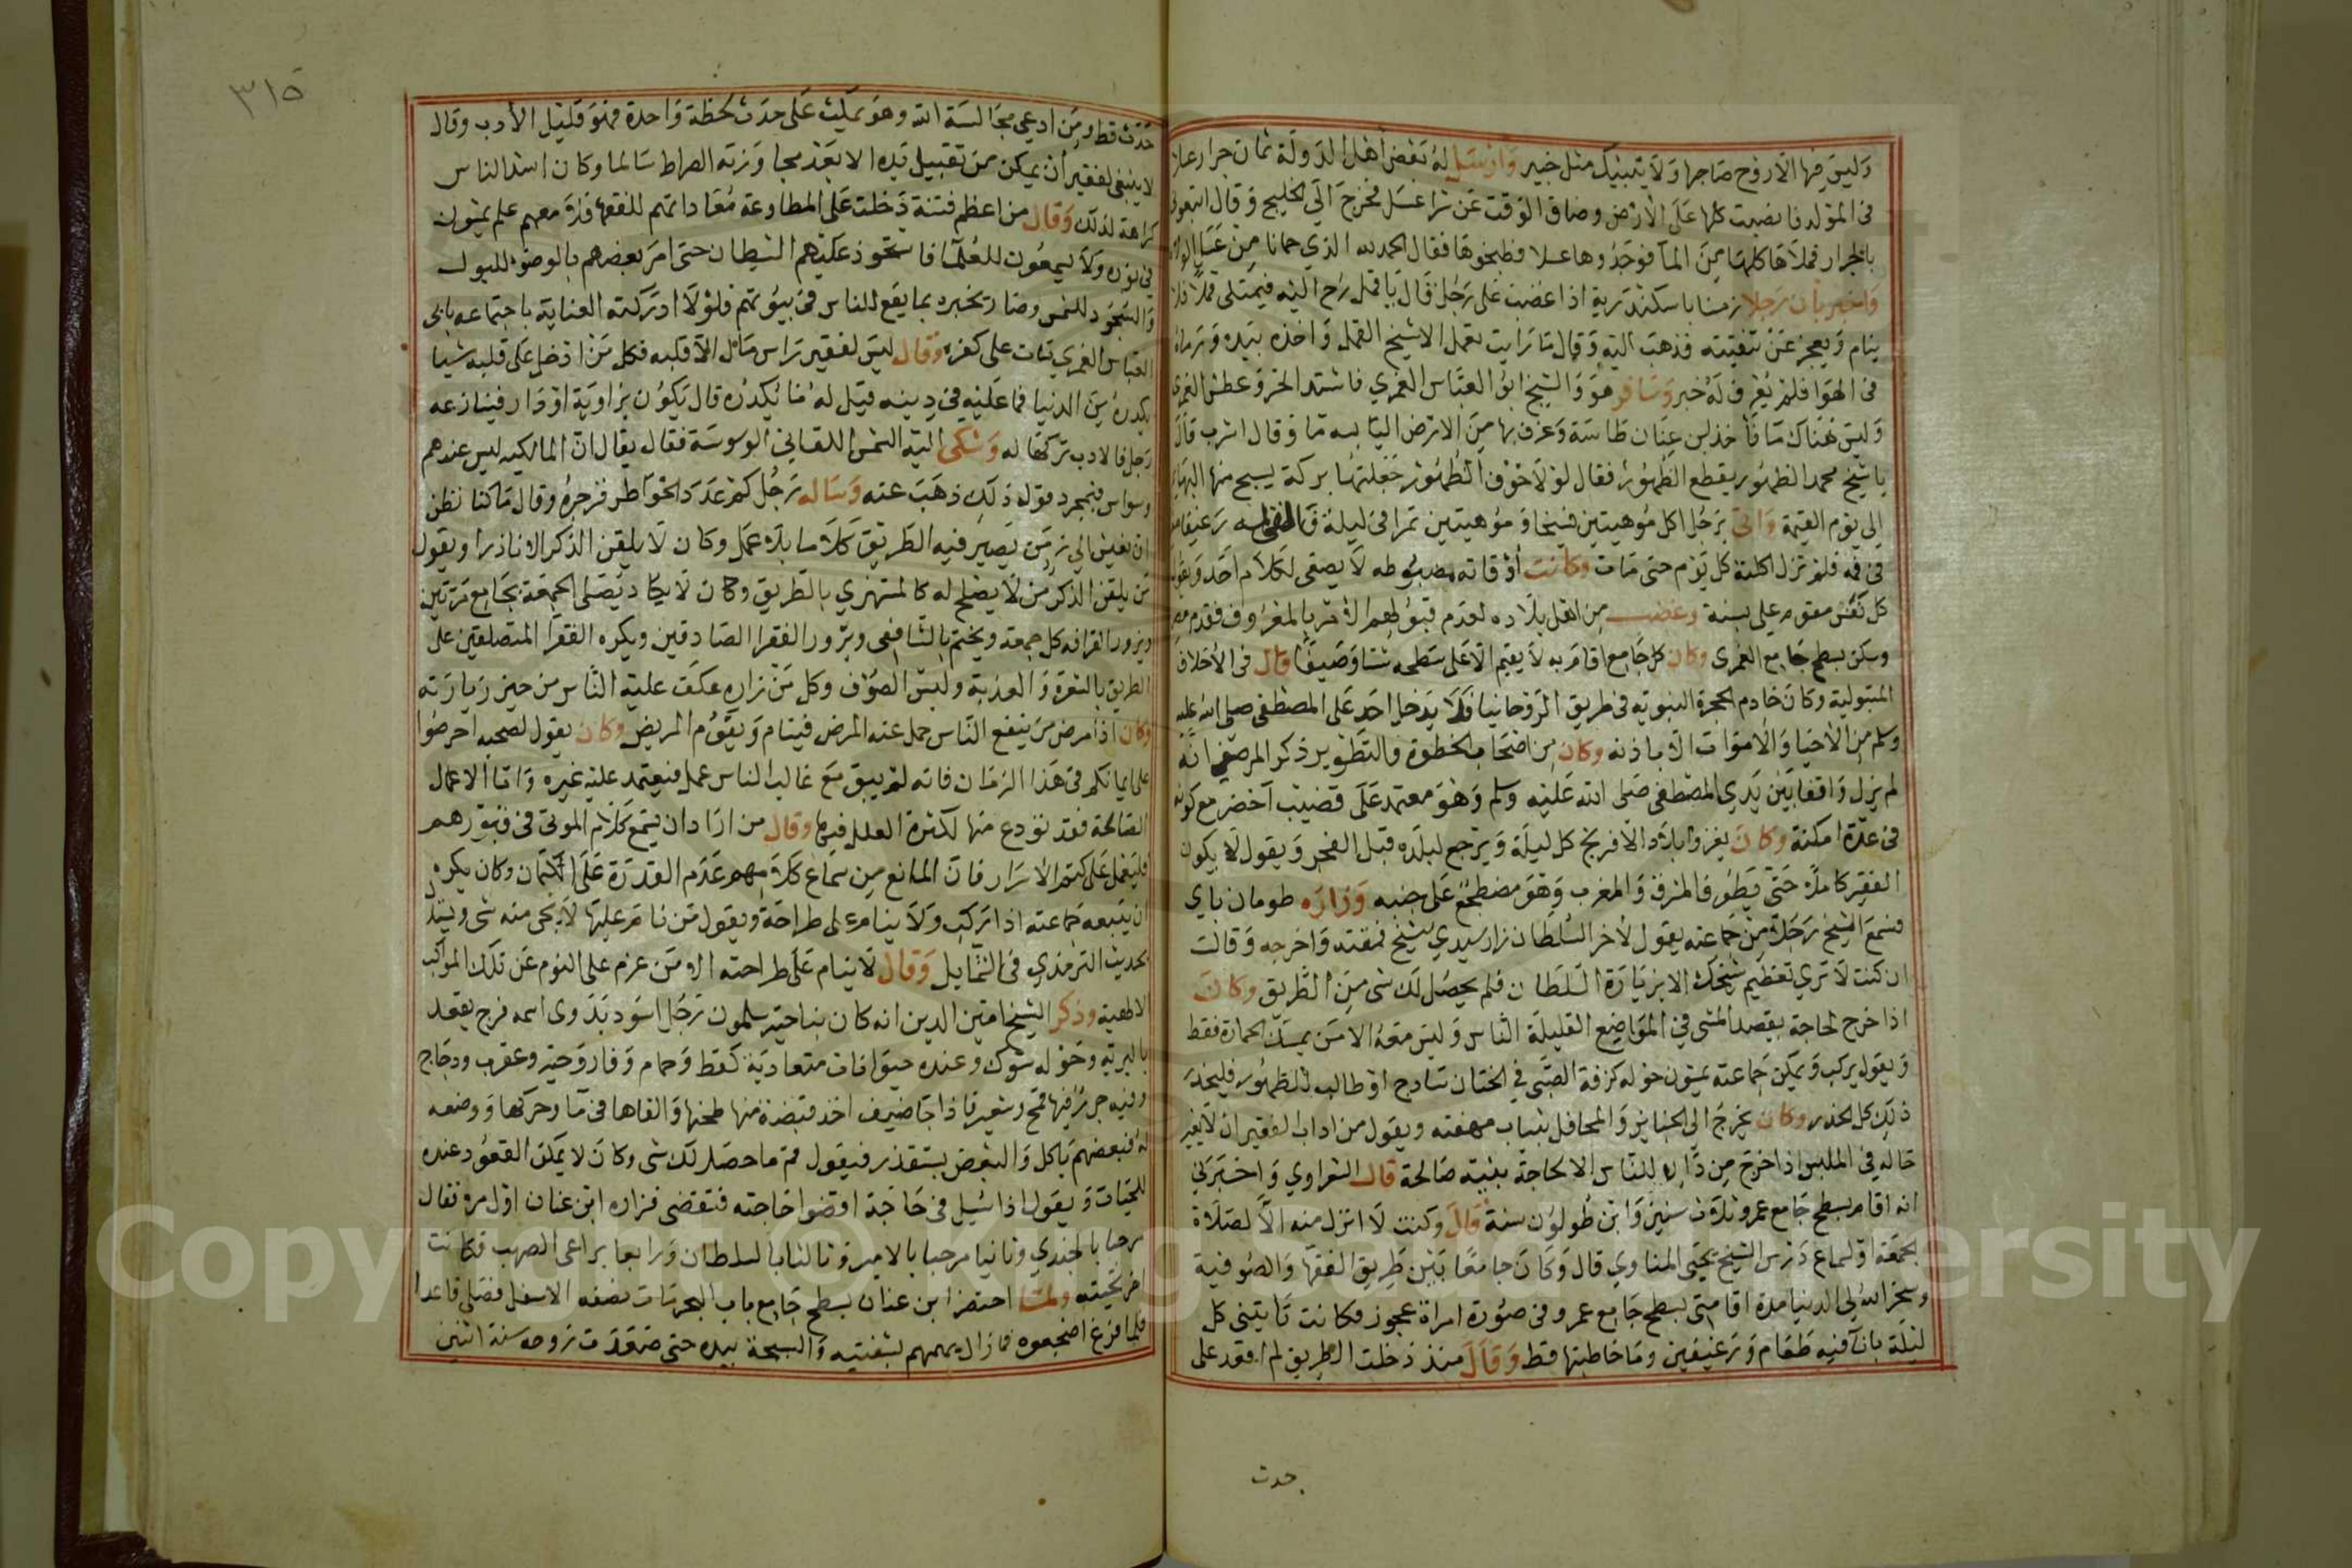 وليس فيها الا روح صاحبها ولا ينبيك مثل خبير وارسل له بعض أهل الدولة ثمان جرار عسل
في المولد فانصبت كلها على الارض وضاق الوقت عن شرا عسل فخرج الى الخليج وقال اتبعوني
بالجرار فملاها كلها من الما فوجدوها عسلا فطبخوها فقال الحمد لله الذي حمانا من
واخبر بان رجلا زمنا باسكندرية اذا غضب على رجل قال يا قمل رح اليه فيمتلى قملا فلا
ينام ويعجز عن تنقيته فذهب اليه وقال ما رايت تعمل الا شيخ القمل واخذه بيده ورماه
في الهوا فلم يعرف له خبر وسافر هو والشيخ ابو العباس الغمري فاشتد الحر وعطش الغمري
وليس هناك ما فأخذ ابن عنان طاسة وغرف بها من الارض اليابسه ما وقال اشرب قال
يا شيخ محمد الظهور يقطع الظهور فقال لولا خوف الظهور جعلتها بركة يسبح منها البهايم
الى يوم القيمة واتى برجل اكل موهيتين فسيخا وموهيتين تمرا في ليلة فالقى له رغيفا
في فمه فلم تزل اكلته كل يوم حتى مات وكانت أوقاته مضبوطه لا يصغى لكلام احد ويقول
كل نفس مقوم على بسنة وغضب من اهل بلاده لعدم قبولهم الامر بالمعروف فقدم مصر
وسكن بسطح جامع الغمرى وكان كل جامع اقام به لا يقيم الا على سطحه شتا وصيفا قال في الاخلاق
المتبولية وكان خادم الحجرة النبويه في طريق الروحانيا فلا يدخل احد على المصطفى صلى الله عليه
وسلم من الاحيا والاموات الا باذنه وكان من اصحاب الخطوة والتطوير ذكر المرصفي انه
لم يزل واقفا بين يدي المصطفى صلى الله عليه وسلم وهو معتمد على قضيب اخضر مع كونه
في عدة امكنة وكان يغزوا بلاد الافرنج كل ليلة ويرجع لبلده قبل الفجر ويقول لا يكون
الفقير كاملا حتى يطوف المشرق والمغرب وهو مضطجع على جنبه وزاره طومان باي
فسمع الشيخ رجلا من جماعته يقول لاخر السلطان زار سيدي الشيخ فمقته واخرجه وقالت
ان كنت لا ترى تعظيم شيخك الا بزيارة السلطان فلم يحصل لك شي من الطريق وكان
اذا خرج لحاجة يقصد المشي في المواضع القليلة الناس وليس معه الا من يمسك الحمارة فقط
ويقول يركب ويمكن جماعته يمشون حوله كزفة الصبى في الختان سادج او طالب للظهور فليحذر
ذلك كل الحذر وكان يخرج الى الجنايز والمحافل بثياب مهنته ويقول من اداب الفقير ان لا يغير
حاله في الملبس اذا خرج من داره للناس الا لحاجة بنية صالحة قال الشعراوي واخبرني
انه اقام بسطح جامع عمرو ثلاث سنين وابن طولون سنة قال وكنت لا انزل منه الا لصلاة
الجمعة او لسماع درس الشيخ يحيى المناوي قال وكان جامعا بين طريق الفقها والصوفية
وسخر الله لي الدنيا مدة اقامتى بسطح جامع عمرو في صورة امراة عجوز فكانت تأتيني كل
ليلة بانا فيه طعام ورغيفين وما خاطبتها قط وقال منذ دخلت الطريق لم اقعد على
حدث
٣١٥
حدث قط ومن ادعي مجالسة الله وهو يمكث على حدث لحظة واحدة فهو قليل الأدب وقال
لا ينبغي لفقير أن يمكن من تقبيل يده الا بعد مجاوزته الصراط سالما وكان اشد الناس
كراهة لذلك وقال من اعظم فتنة دخلت على المطاوعة معاداتهم للفقها فلا معهم علم يمشون
في نوره ولا يسمعون للعلما فاستحوذ عليهم الشيطان حتى امر بعضهم بالوضوء للبول
والسجود للشمس وصار يخبره بما يقع للناس في بيوتهم فلولا ادركته العناية باجتماعه بابي
العباس الغمري مات على كفره وقال ليس لفقير راس مال الا قلبه فكل من ادخل على قلبه شيا
يكدره من الدنيا فما عليه في دينه قيل له ما يكدره قال يكون بزاوية او دار فينازعه
رجل فالادب تركها له وشكى اليه الشمس اللقاني الوسوسة فقال يقال ان المالكيه ليس عندهم
وسواس فبمجرد قوله ذلك ذهب عنه وساله رجل كم عدد الخواطر فزجره وقال ما كنا نظن
ان نعيش الى زمن يصير فيه الطريق كلاما بلا عمل وكان لا يلقن الذكر الا نادرا ويقول
من يلقن الذكر من لا يصلح له كالمستهزي بالطريق وكان لا يكاد يصلى الجمعة بجامع مرتين
ويزور القرافه كل جمعة ويختم بالشافعي ويزور الفقرا الصادقين ويكره الفقرا المتصلقين على
الطريق بالشعرة والعذبة ولبس الصوف وكل من زاره عكف عليه الناس من حين زيارته
وكان اذا مرض من ينفع الناس حمل عنه المرض فينام ويقوم المريض وكان يقول لصحبه احرصوا
على ايمانكم في هذا الزمان فانه لم يبق مع غالب الناس عمل فيعتمد عليه غيره واما الاعمال
الصالحة فقد تودع منها لكثرة العلل فيها وقال من اراد ان يسمع كلام الموتى في قبورهم
فليعمل على كتم الاسرار فان المانع من سماع كلامهم عدم القدرة على الكتمان وكان يكره
ان يتبعه جماعته اذا ركب ولا ينام على طراحة ويقول من نام عليها لا يجى منه شي ويستدل
بحديث الترمذي في الشمايل وقال لا ينام على طراحته الا من عزم على النوم عن تلك المواكب
الالهية وذكر الشيخ امين الدين انه كان بناحية سلمون رجل اسود بدوى اسمه فرج يقعد
بالبرية وحوله شوك وعنده حيوانات متعادية كقط وحمام وفار وحية وعقرب ودجاج
وفيه جرار فيها قمح وشعير فاذا جا ضيف اخذ قبضة منها طحنها والقاها في ما وحركها ووضعه
له فبعضهم ياكل والبعض يستقذر فيقول قم ما حصل لك شى وكان لا يمكن القعود عنده
للحيات ويقول اذا سئل في حاجة اقضوا حاجته فتقضى فزاره ابن عنان اول مرة فقال
مرحبا بالجندي وثانيا مرحبا بالامير وثالثا بالسلطان ورابعا براعى الصهب فكانت
اخر تحيته ولما احتضر ابن عنان بسطح جامع باب البحر مات نصفه الاسفل فصلى قاعدا
فلما فرغ اضجعوه فما زال يهمهم بشفتيه والسبحة بيده حتى صعدت روحه سنة اثنين